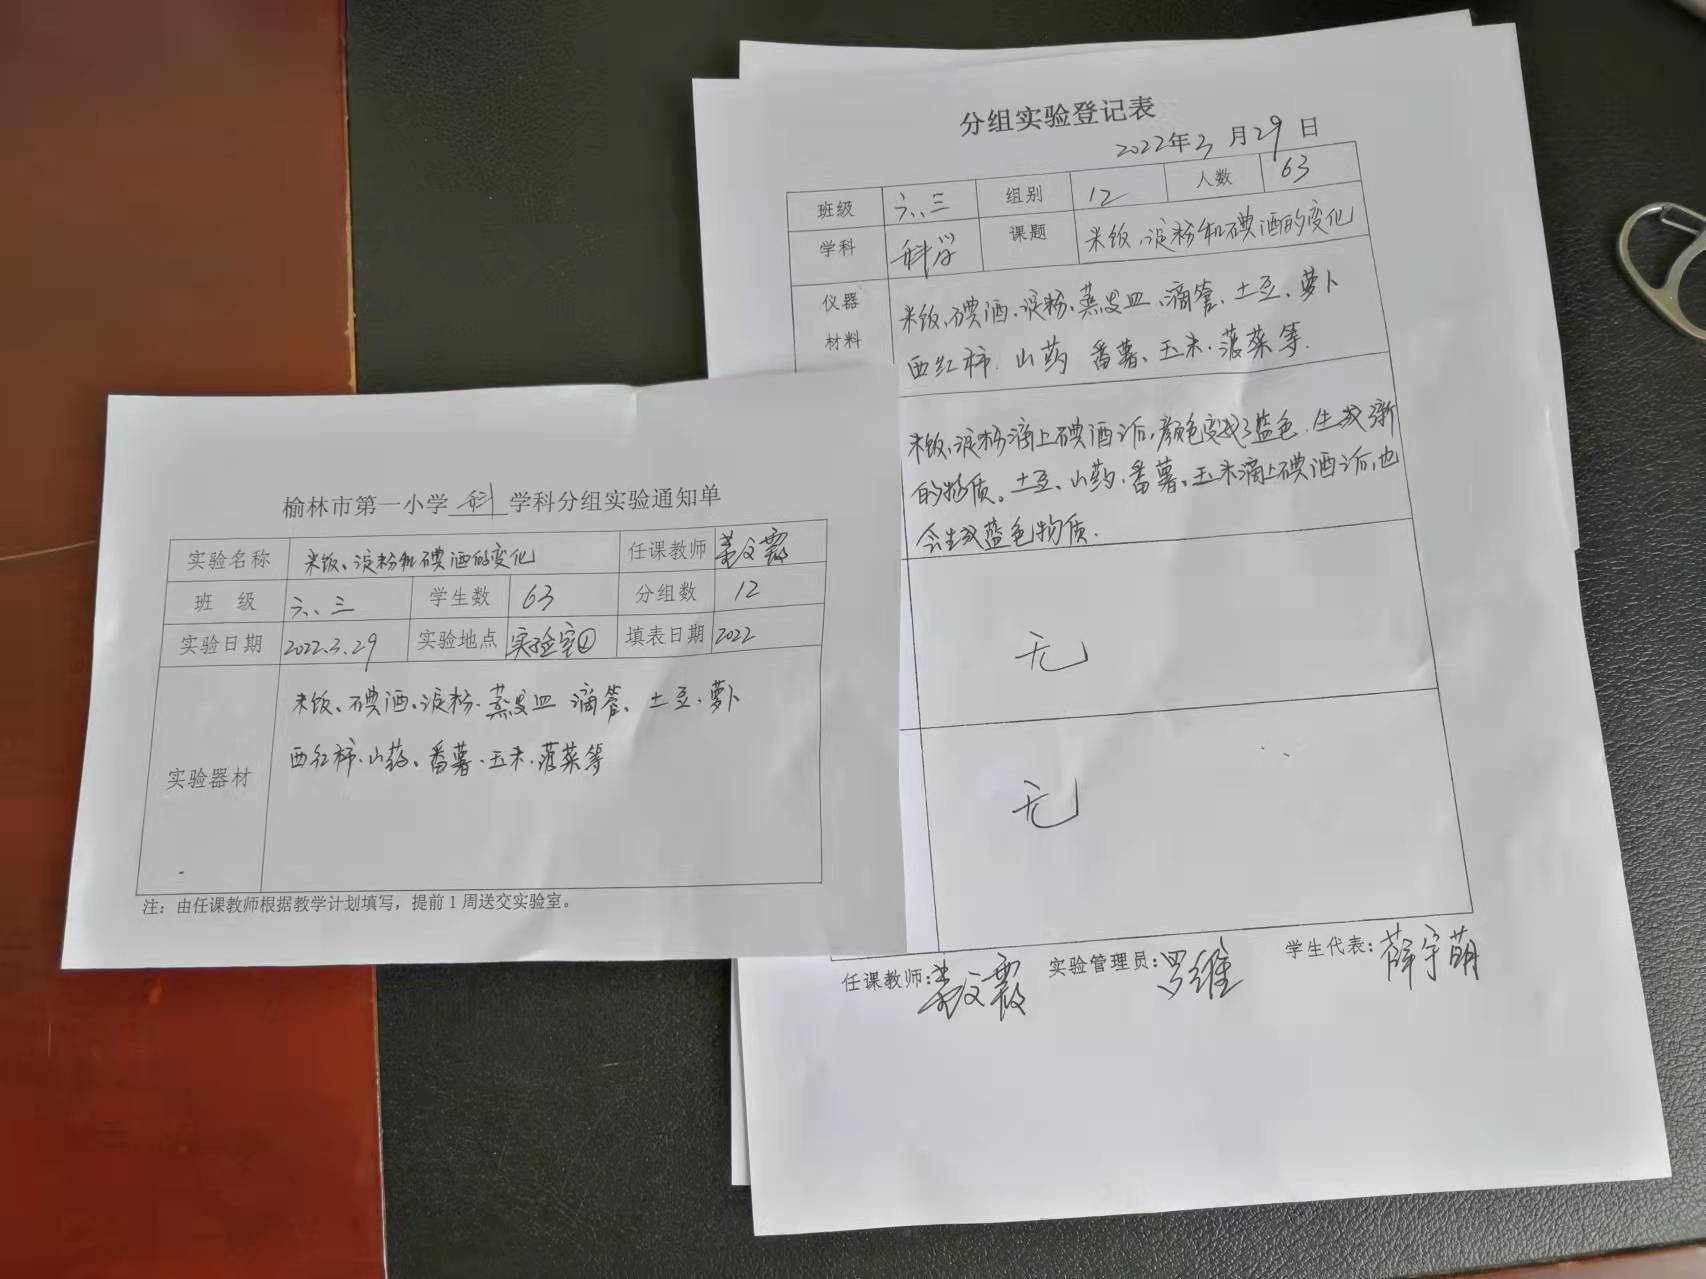 榆林市第一小学 科 学科分组实验通知单
实验名称 米饭、淀粉和碘酒的变化 任课教师
班 级 六、三 学生数 63 分组数 12
实验日期 2022.3.29 实验地点 实验室① 填表日期 2022
米饭、碘酒、淀粉、蒸发皿 滴管、土豆、萝卜
实验器材 西红柿、山药、番薯、玉米、菠菜等
注：由任课教师根据教学计划填写，提前1周送交实验室。
分组实验登记表
2022年3月29日
班级 六、三 组别 12 人数 63
学科 科学 课题 米饭、淀粉和碘酒的变化
仪器 米饭、碘酒、淀粉、蒸发皿、滴管、土豆、萝卜
材料 西红柿、山药 番薯、玉米、菠菜等.
米饭、淀粉滴上碘酒后，颜色变成了蓝色.生成新
的物质。土豆、山药、番薯、玉米滴上碘酒后，也
会生成蓝色物质.
无
无
任课教师: 实验管理员:罗维 学生代表:薛宇萌